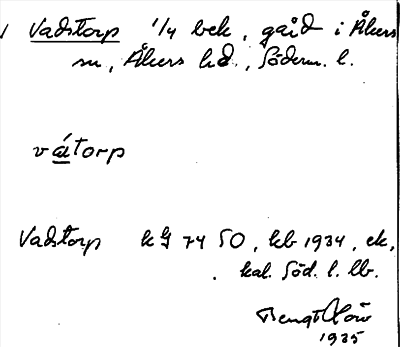 Vadstorp 1/4 bek, gård i Åkers
sn, Åkers hd., Söderm. l.
vátorp
Vadstorp kG 74 SO, kb 1934, ek,
kal. Söd. l. lb.
Bengt
1935